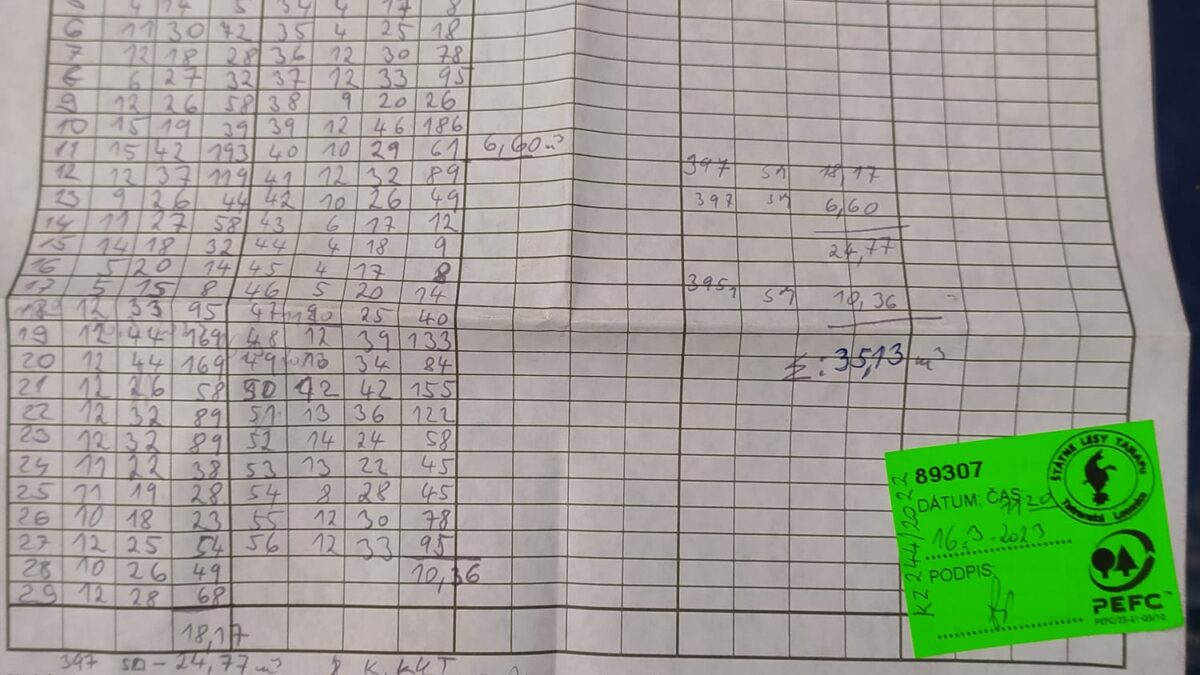 4 14 5 34 4 17 8
6 11 30 72 35 4 25 18
7 12 18 28 36 12 30 78
8 6 27 32 37 12 33 95
9 12 26 58 38 9 20 26
10 15 19 39 39 12 46 186
11 15 42 193 40 10 29 61 6,60 m³
12 12 37 119 41 12 32 89 397 sm 18,17
13 9 26 44 42 10 26 49 397 sm 6,60
14 11 27 58 43 6 17 12
15 14 18 32 44 4 18 9 24,77
16 5 20 14 45 4 17 8
17 5 15 8 46 5 20 14 395 sm 10,36
18 12 33 95 47 25 40
19 12 44 169 48 12 39 133
20 12 44 169 49 10 34 84 Σ: 35,13 m³
21 12 26 58 50 12 42 155
22 12 32 89 51 13 36 122
23 12 32 89 52 14 24 58
24 11 22 38 53 13 22 45
25 11 19 28 54 8 28 45
26 10 18 23 55 12 30 78
27 12 25 54 56 12 33 95
28 10 26 49 10,36
29 12 28 68
18,17
397 sm - 24,77 m³
ŠTÁTNE LESY TANAPU
Tatranská Lomnica
KZ 244/2022
89307
DÁTUM: ČAS: 1120
16.3.2023
PODPIS:
PEFC™
PEFC/23-21-03/10